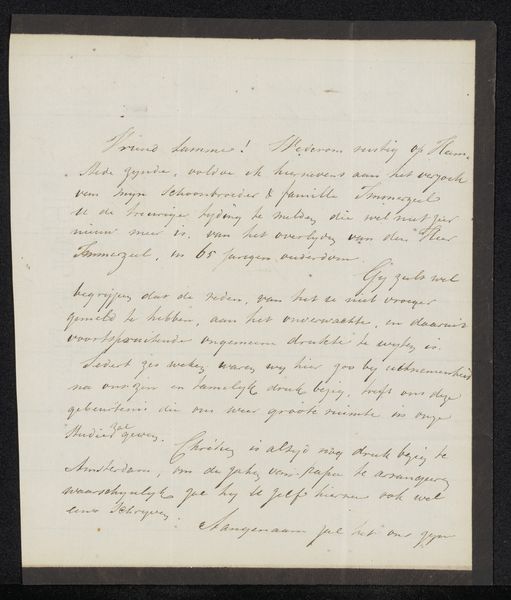 Vriend Lamme! Wederom rustig op Heem-
stede zijnde, voldoe ik hiernevens aan het verzoek
van mijn Schoonbroeder & famille Immerzeel
U de treurige tijding te melden die wel niet zeer
nieuw meer is, van het overlijden van den Heer
Immerzeel, in 65 jarigen ouderdom.
Gij zult wel
begrijpen dat de reden, van het U niet vroeger
gemeld te hebben, aan het onverwachte, en daaruit
voortspruitende ongemeen drukte te wijten is.
Sedert zes weken waren wij hier zoo bij uitnemenheid
na onze zin en tamelijk druk bezig, treft ons deze
gebeurtenis die ons weer groote ruimte in onze
Studie zal geven.
Chrétien is altijd nog druk bezig te
Amsterdam, om de zaken van Papa te arrangeren
waarschijnlijk zal hij U zelf hierover ook wel
eens schrijven.
Aangenaam zal het ons zijn